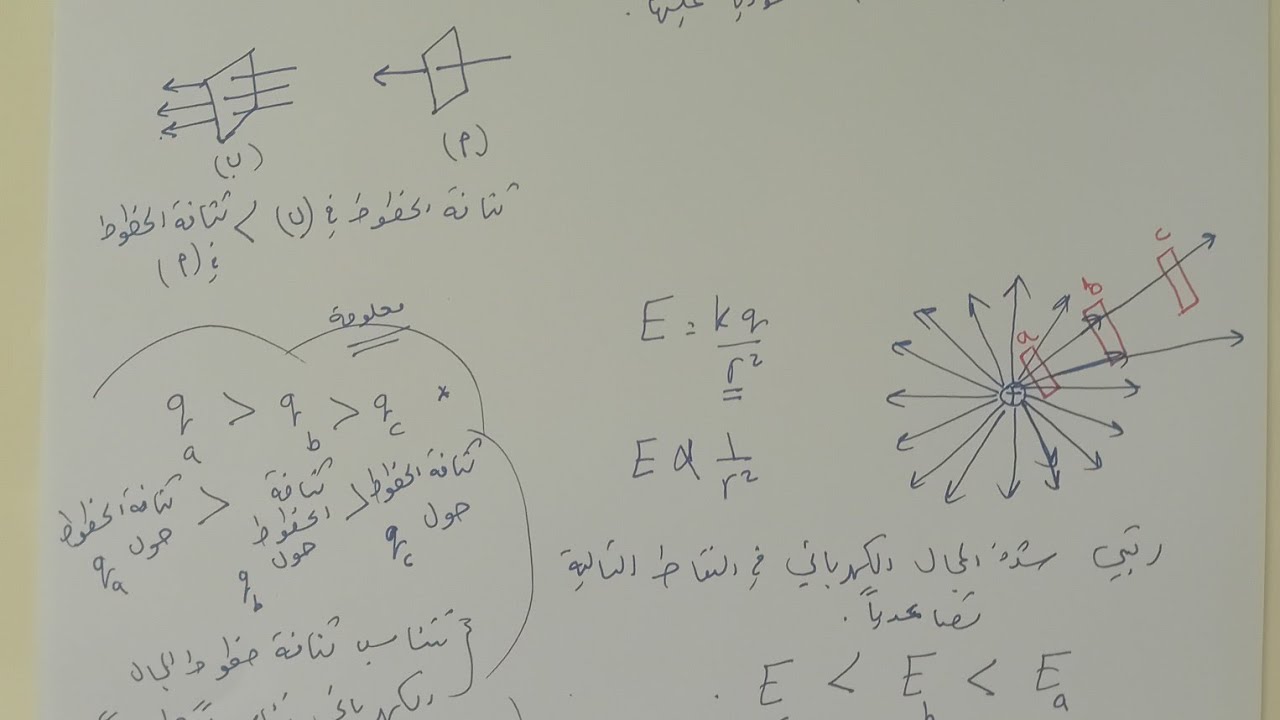 عليها.
(ب) (أ)
كثافة الخطوط في (ب) > كثافة الخطوط
في (أ)
معلومة
q_a > q_b > q_c *
كثافة الخطوط حول q_a > كثافة الخطوط حول q_b > كثافة الخطوط حول q_c
تتناسب كثافة خطوط المجال
الكهربائي
E = kq/r²
E α 1/r²
a b c
+
رتبي شدة المجال الكهربائي في النقاط التالية
تصاعدياً.
E < E_b < E_a .